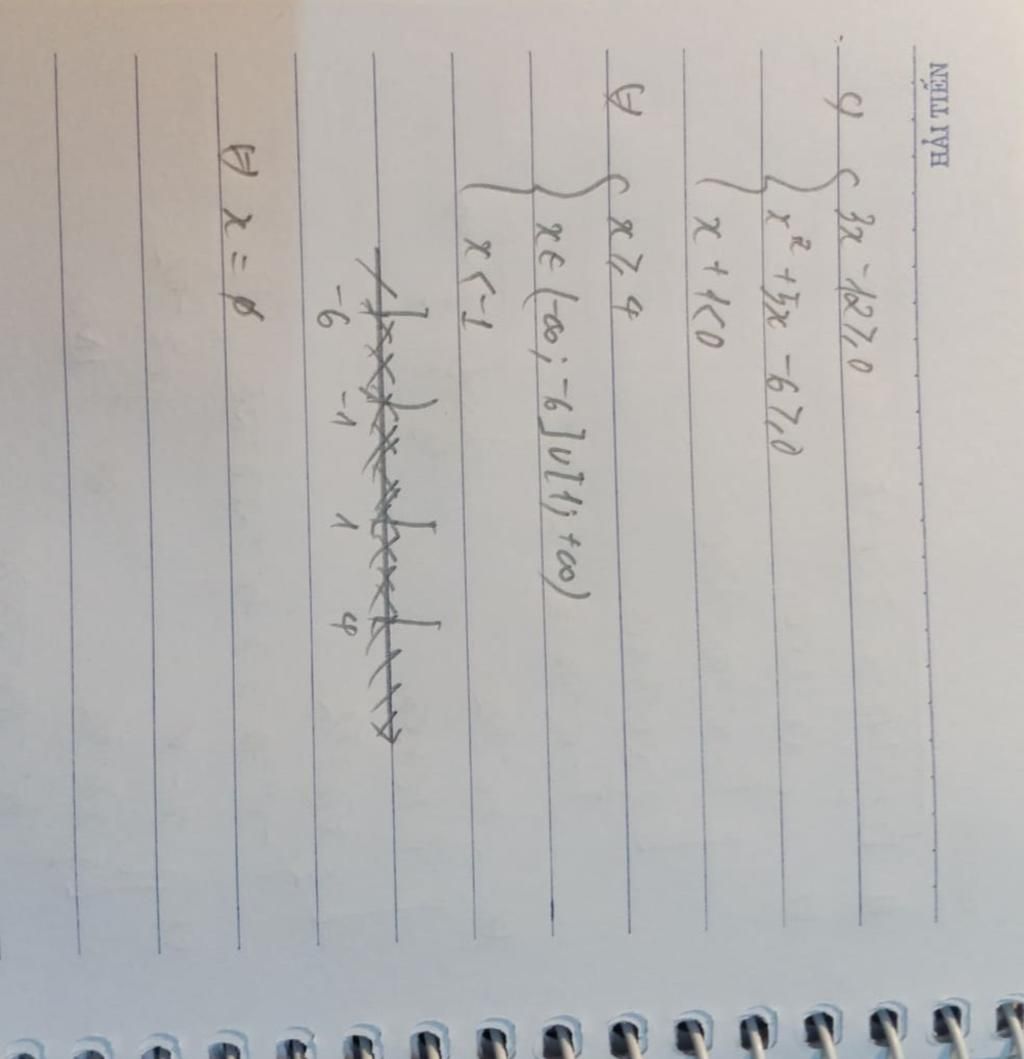 HẢI TIẾN
c) { 3x - 12 ≥ 0
x² + 5x - 6 ≥ 0
x + 1 < 0
⇔ { x ≥ 4
x ∈ (-∞; -6] ∪ [1; +∞)
x < -1
-6 -1 1 4
⇔ x = ∅